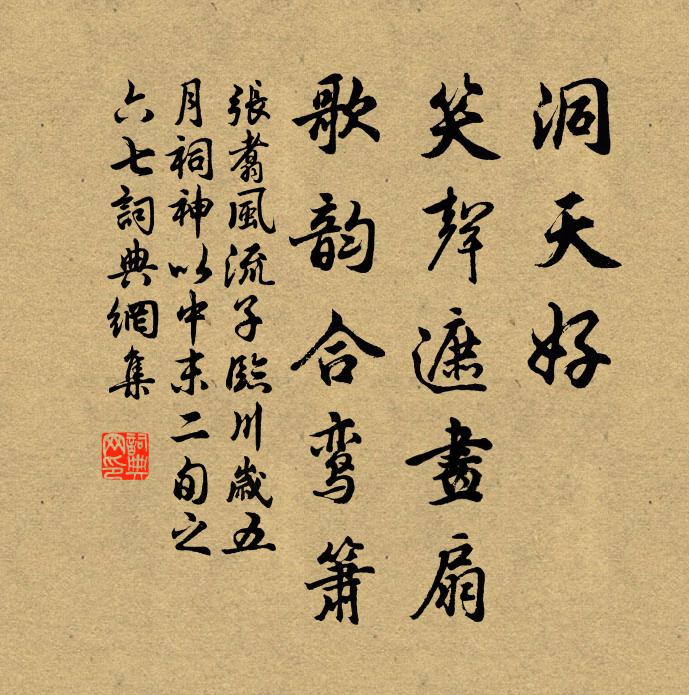 洞天好
笑聲遮畫扇
歌韵合鸾簫
張翥風流子臨川歲五
月祠神以中末二旬之
六七詞典網集
詞典网印